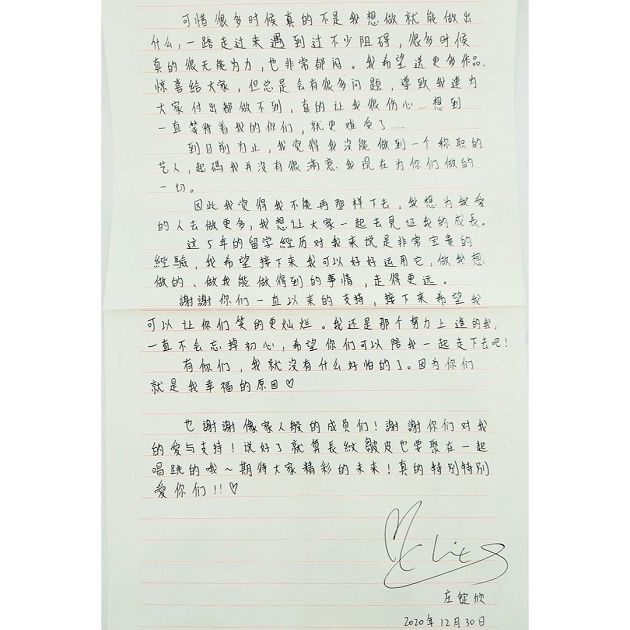 可惜很多时候真的不是我想做就能做出
什么,一路走过来遇到过不少阻碍,很多时候
真的很无能为力,也非常郁闷。我希望送更多作品、
惊喜给大家,但总是会有很多问题,导致我连为
大家付出都做不到,真的让我很伤心...想到
一直等待着我的你们,就更难受了.....
到目前为止,我觉得我没能做到一个称职的
艺人,起码我并没有很满意我现在为你们做的
一切。
因此我觉得我不能再那样下去,我想为我爱
的人去做更多,我想让大家一起去见证我的成长。
这5年的留学经历对我来说是非常宝贵的
经验,我希望接下来我可以好好运用它,做我想
做的、做我能做得到的事情,走得更远。
謝謝你们一直以来的支持,接下来希望我
可以让你们笑的更灿烂。我还是那个努力上進的我,
一直不会忘掉初心,希望你们可以陪我一起走下去吧!
有你们,我就没有什么好怕的了。因为你们
就是我幸福的原因♡
也謝謝像家人般的成员们!謝謝你们对我
的爱与支持!说好了就算长皱皮也要聚在一起
唱跳的哦~期待大家精彩的未来!真的特别特别
爱你们!!♡
庄锭欣
2020年12月30日